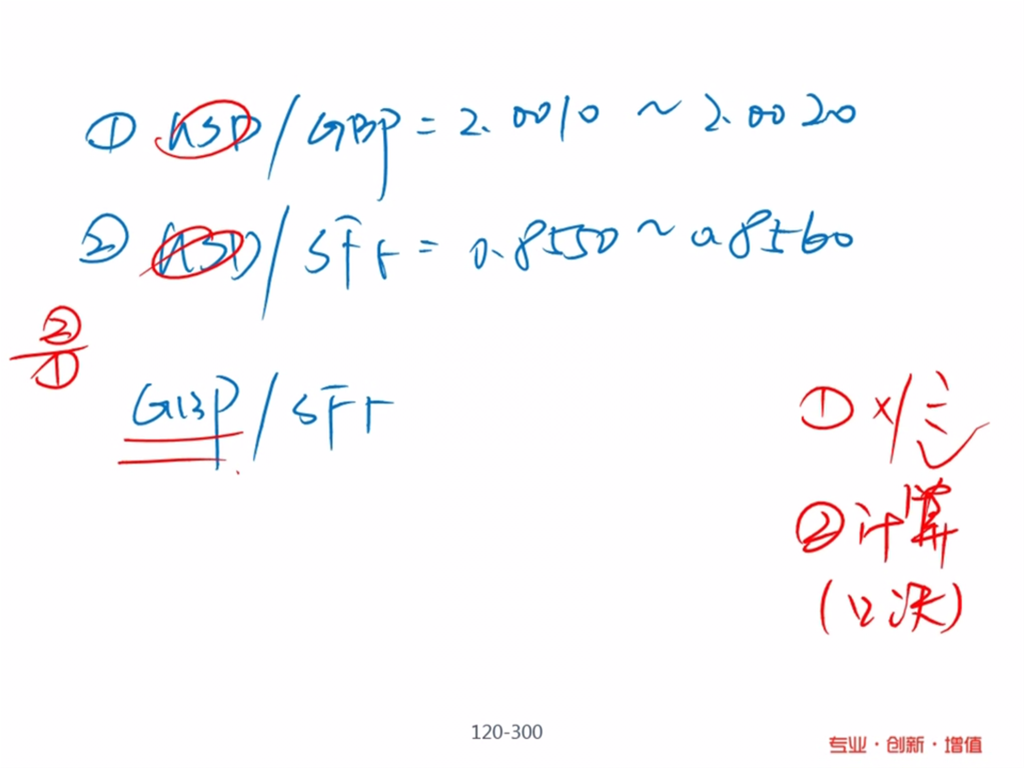 ① USD/GBP = 2.0010 ~ 2.0020
② USD/SFr = 0.8550 ~ 0.8560
②
①
GBP/SFr
① ×/÷ ✓
② 计算
(口决)
120-300
专业·创新·增值